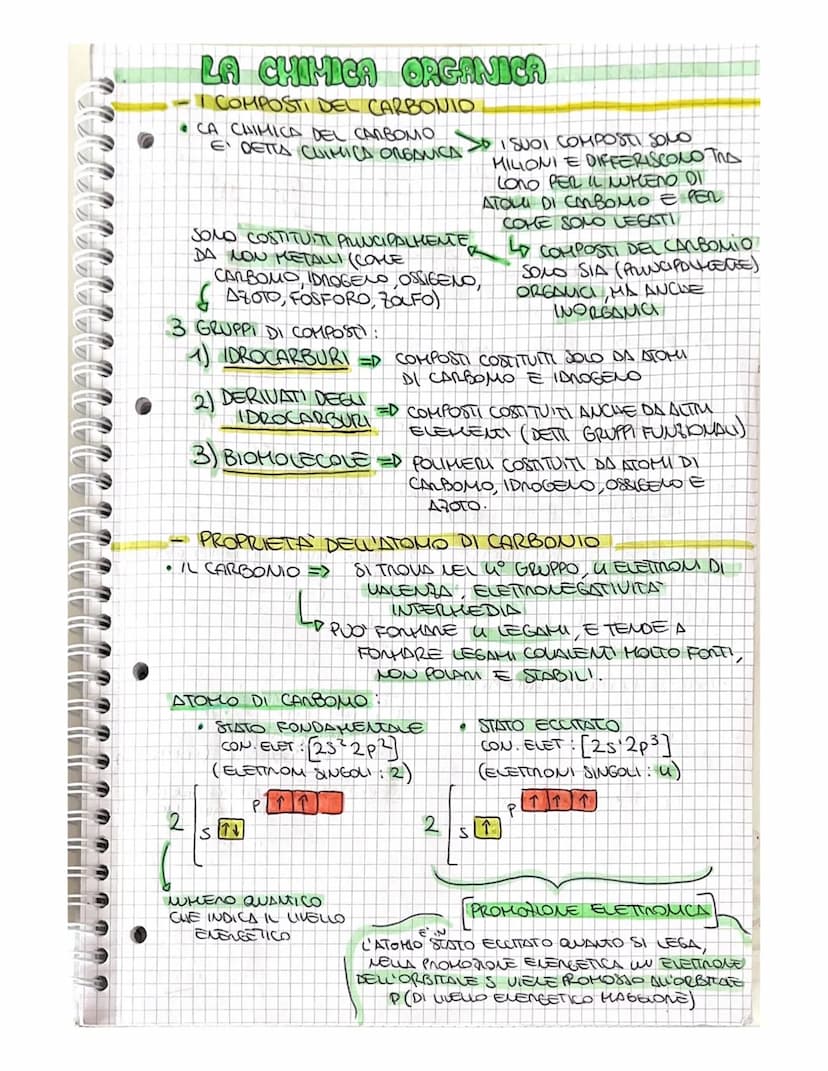 LA CHIMICA ORGANICA
- I COMPOSTI DEL CARBONIO
• LA CHIMICA DEL CARBONIO
E' DETTA CHIMICA ORGANICA
I SUOI COMPOSTI SONO
MILIONI E DIFFERISCONO TRA
LORO PER IL NUMERO DI
ATOMI DI CARBONIO E PER
COME SONO LEGATI
COMPOSTI DEL CARBONIO
SONO SIA (PRINCIPALMENTE)
ORGANICI, MA ANCHE
INORGANICI
SONO COSTITUITI PRINCIPALMENTE
DA NON METALLI (COME
CARBONIO, IDROGENO, OSSIGENO,
AZOTO, FOSFORO, ZOLFO)
3 GRUPPI DI COMPOSTI:
1) IDROCARBURI => COMPOSTI COSTITUITI SOLO DA ATOMI
DI CARBONIO E IDROGENO
2) DERIVATI DEGLI
IDROCARBURI => COMPOSTI COSTITUITI ANCHE DA ALTRI
ELEMENTI (DETTI GRUPPI FUNZIONALI)
3) BIOMOLECOLE => POLIMERI COSTITUITI DA ATOMI DI
CARBONIO, IDROGENO, OSSIGENO E
AZOTO.
- PROPRIETA' DELL'ATOMO DI CARBONIO
• IL CARBONIO => SI TROVA NEL 4° GRUPPO, 4 ELETTRONI DI
VALENZA, ELETTRONEGATIVITA'
INTERMEDIA
PUO' FORMARE 4 LEGAMI, E TENDE A
FORMARE LEGAMI COVALENTI MOLTO FORTI,
NON POLARI E STABILI.
ATOMO DI CARBONIO:
• STATO FONDAMENTALE
CON. ELET: [2s² 2p²]
(ELETTRONI SINGOLI: 2)
P ↑ ↑
2 S ↑↓
NUMERO QUANTICO
CHE INDICA IL LIVELLO
ENERGETICO
• STATO ECCITATO
CON. ELET: [2s¹ 2p³]
(ELETTRONI SINGOLI: 4)
P ↑ ↑ ↑
2 S ↑
[PROMOZIONE ELETTRONICA]
L'ATOMO E' IN STATO ECCITATO QUANTO SI LEGA,
NELLA PROMOZIONE ENERGETICA UN ELETTRONE
DELL'ORBITALE S VIENE PROMOSSO ALL'ORBITALE
P (DI LIVELLO ENERGETICO MAGGIORE)